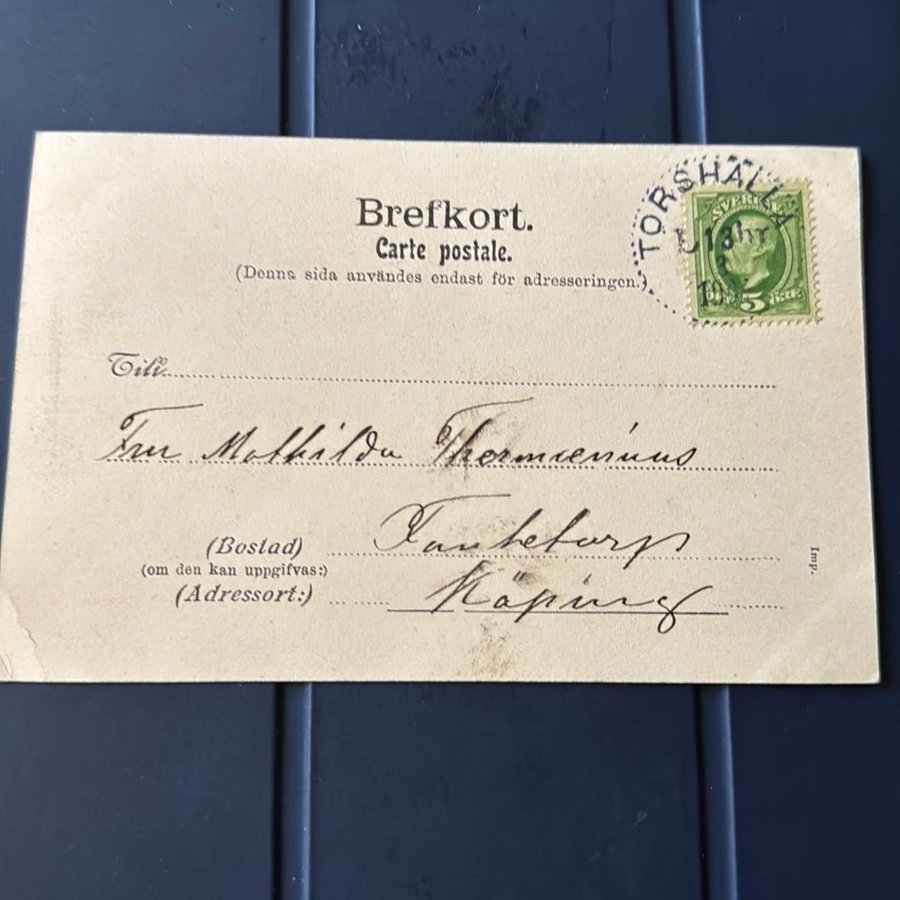 Brefkort.
Carte postale.
(Denna sida användes endast för adresseringen.)
TORSHÄLLA
SVERIGE
5
Till
Fru Mathilda
(Bostad)
(om den kan uppgifvas:)
(Adressort:) Köping
Imp.